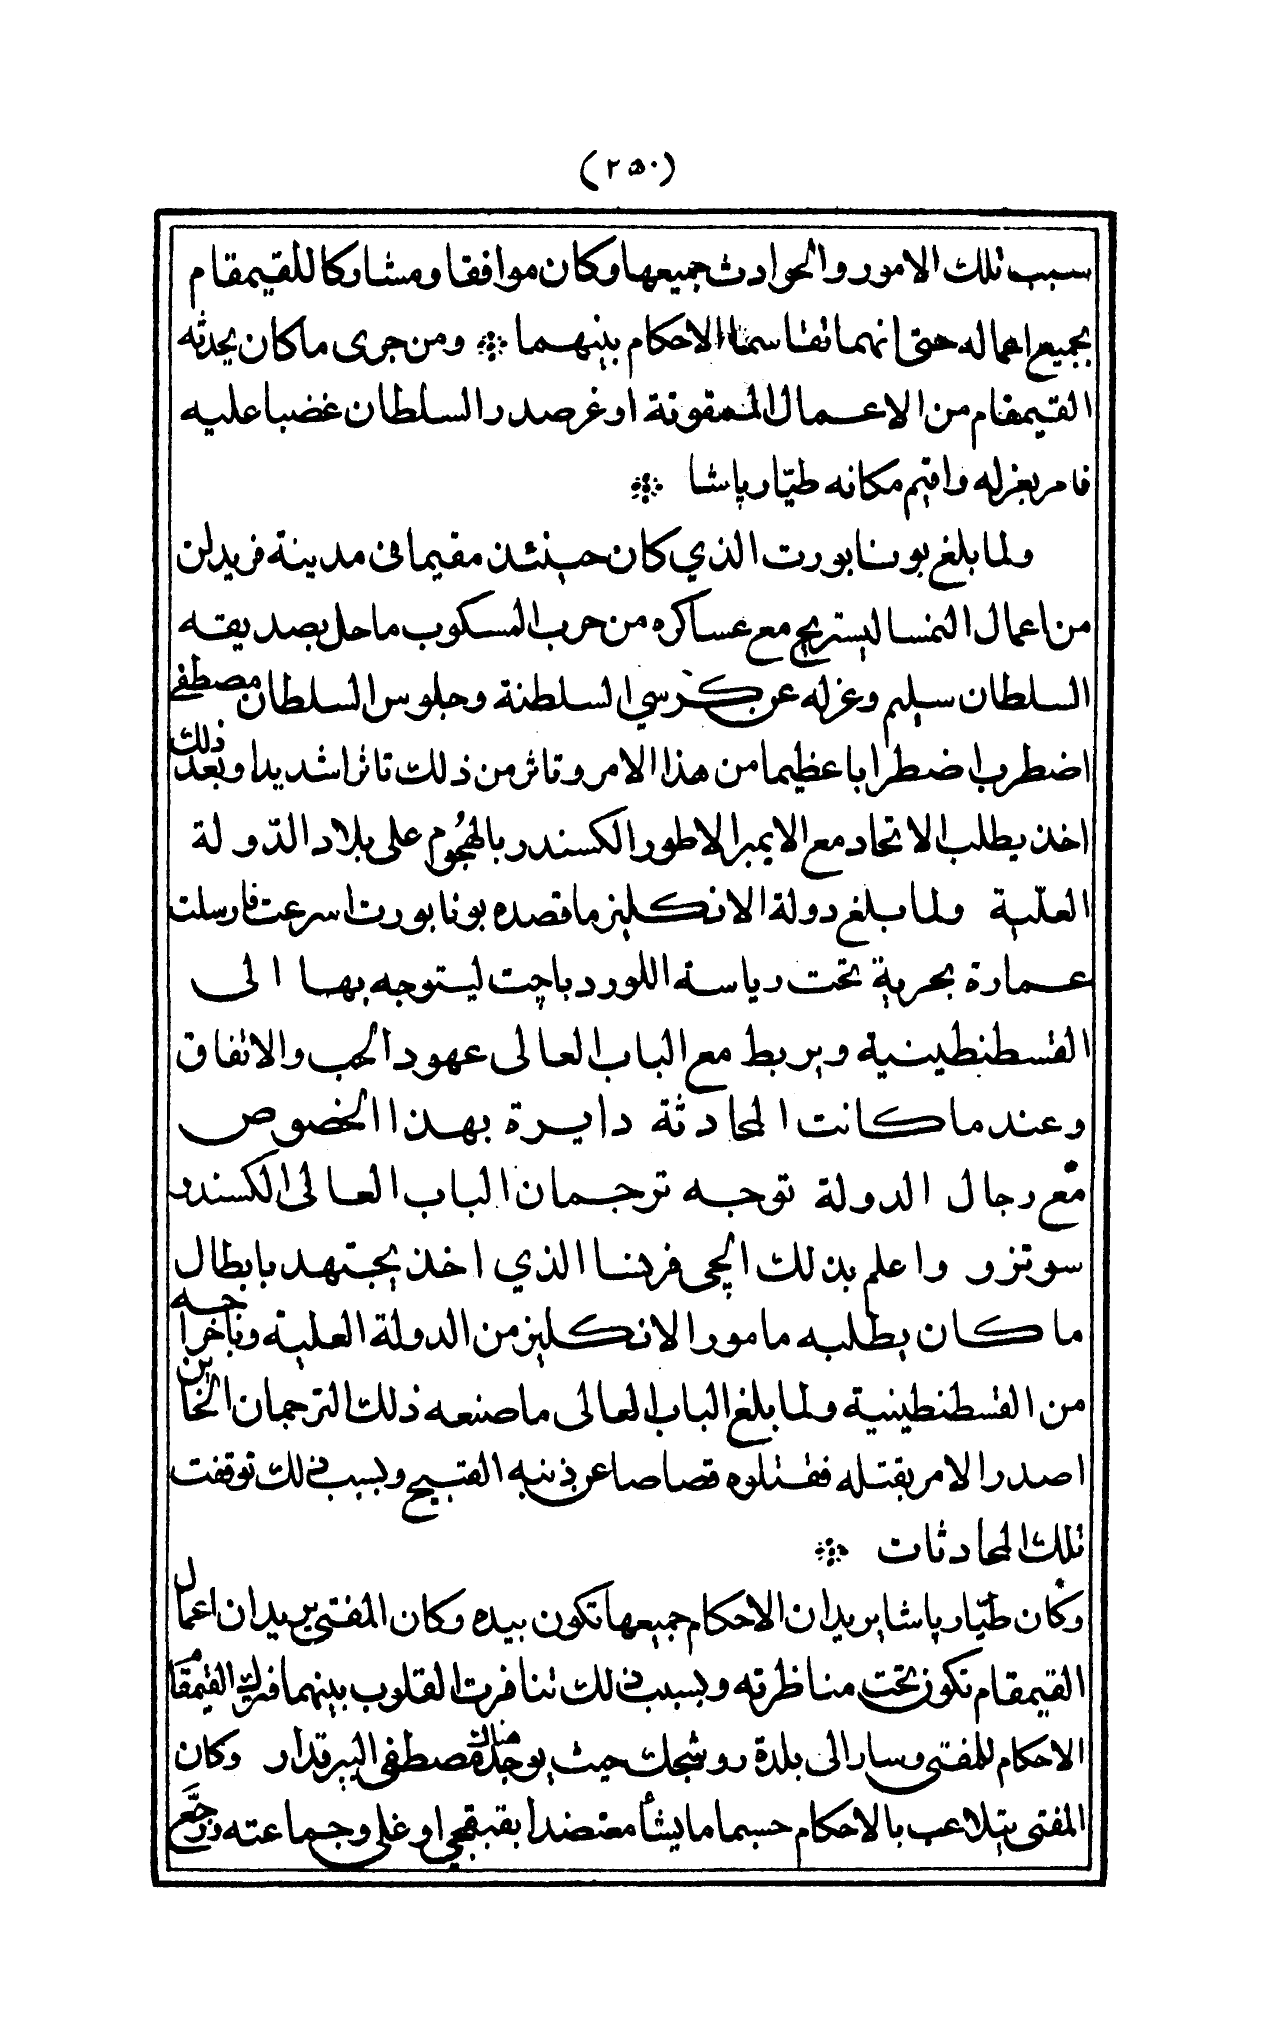 (٢٥٠)
سبب تلك الامور والحوادث جميعها وكان موافقا ومشاركا للقيمقام
بجميع اعماله حتى انهما تقاسما الاحكام بينهما ❊ ومن جرى ماكان يحدثه
القيمقام من الاعمال الممقوتة اوغر صدر السلطان غضبا عليه
فامر بعزله واقيم مكانه طيّار پاشا ❊
ولما بلغ بونابورت الذي كان حينئذ مقيما فى مدينة فريدلن
من اعمال النمسا ليستريح مع عساكره من حرب المسكوب ماحل بصديقه
السلطان سليم وعزله عن كرسي السلطنة وجلوس السلطان مصطفى
اضطرب اضطرابا عظيما من هذا الامر وتاثر من ذلك تاثرا شديدا وبعد ذلك
اخذ يطلب الاتحاد مع الايمبرالاطور الكسندر بالهجُوم على بلاد الدّولة
العليّة ولما بلغ دولة الانكليز ماقصده بونابورت اسرعت فارسلت
عمارة بحرية تحت رياسة اللورد باچت ليتوجه بها الى
القسطنطينية ويربط مع الباب العالى عهود الحب والاتفاق
وعندما كانت المحادثة دايرة بهذا الخصوص
مع رجال الدولة توجه ترجمان الباب العالى الكسندر
سوتزو واعلم بذلك الچى فرنسا الذي اخذ يجتهد بابطال
ماكان يطلبه مامور الانكليز من الدولة العلية وباخراجه
من القسطنطينية ولما بلغ الباب العالى ماصنعه ذلك الترجمان الخاين
اصدر الامر بقتله فقتلوه قصاصا عن ذنبه القبيح وبسبب ذلك توقفت
تلك المحادثات ❊
وكان طيّار پاشا يريد ان الاحكام جميعها تكون بيده وكان المفتى يريد ان اعمال
القيمقام تكون تحت مناظرته وبسبب ذلك تنافرت القلوب بينهما فترك القيمقام
الاحكام للمفتى وسار الى بلدة روشجك حيث يوجد هناك مصطفى البيرقدار وكان
المفتى يتلاعب بالاحكام حسبما مايشأ معتضدا بقبقجي اوغلى وجماعته